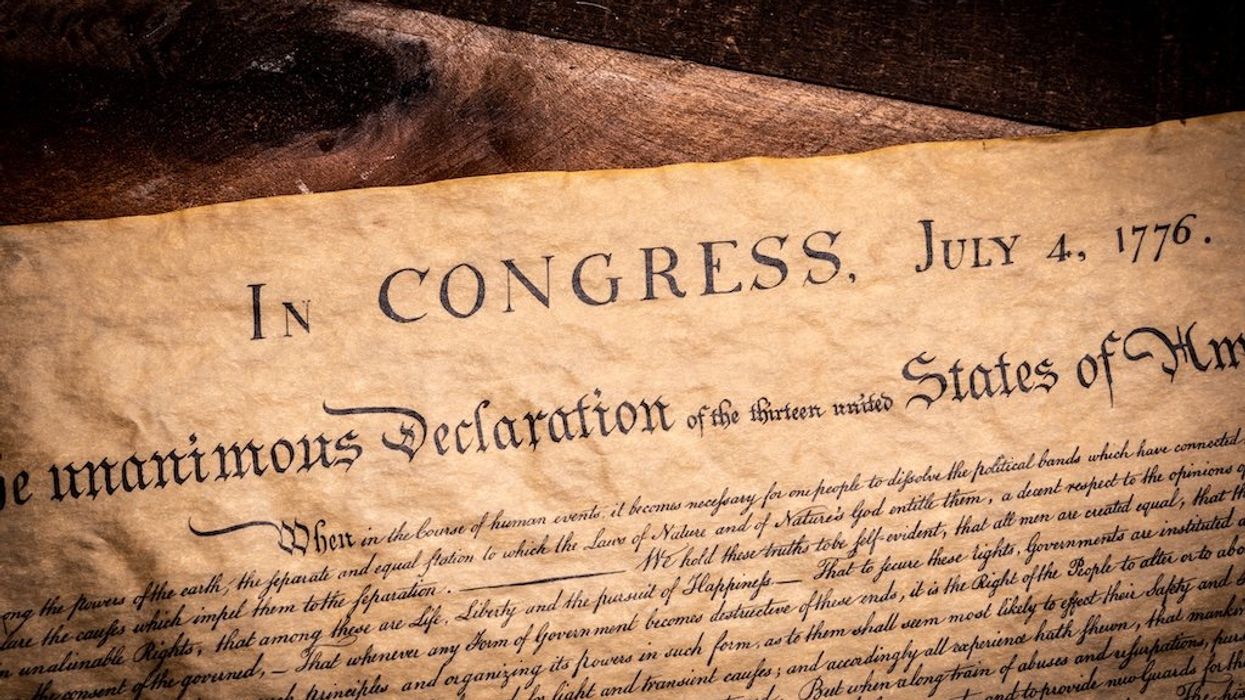 In CONGRESS, July 4, 1776.
unanimous Declaration of the thirteen united States of Am
When in the Course of human events, it becomes neceſsary for one people to diſsolve the political bands which have connected
ong the powers of the earth, the ſeparate and equal ſtation to which the Laws of Nature and of Nature's God entitle them, a decent respect to the opinions of
lare the cauſes which impel them to the ſeparation. — We hold these truths to be ſelf-evident, that all men are created equal, that th
n unalienable Rights, that among these are Life, Liberty and the pursuit of Happineſs.— That to ſecure these rights, Governments are instituted a
the consent of the governed, — That whenever any Form of Government becomes destructive of these ends, it is the Right of the People to alter or to abo
principles and organizing its powers in such form, as to them shall seem most likely to effect their Safety and
light and transient cauſes; and accordingly all experience hath ſhewn, that mankin
But when a long train of abuses and uſurpations, purs
and to provide new Guards for the